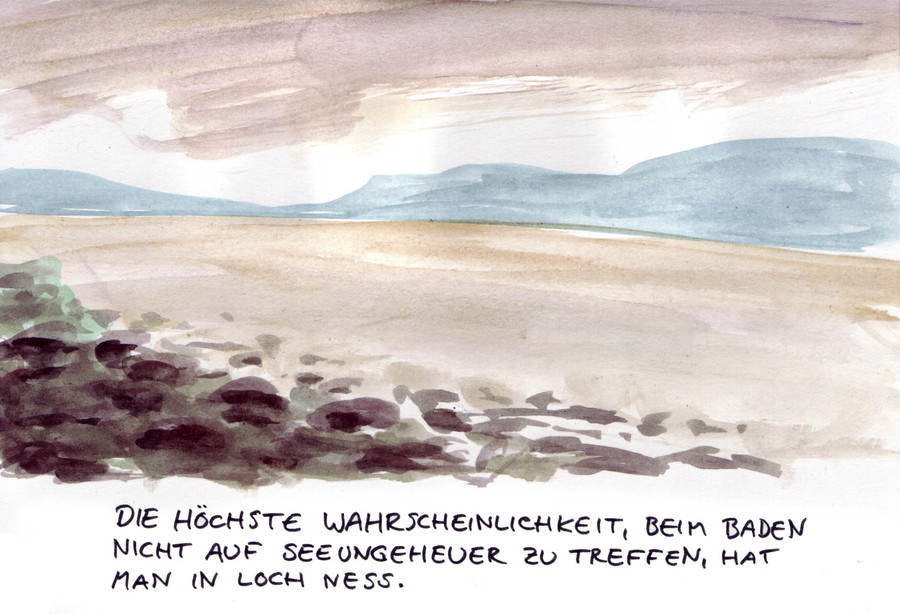 DIE HÖCHSTE WAHRSCHEINLICHKEIT, BEIM BADEN
NICHT AUF SEEUNGEHEUER ZU TREFFEN, HAT
MAN IN LOCH NESS.